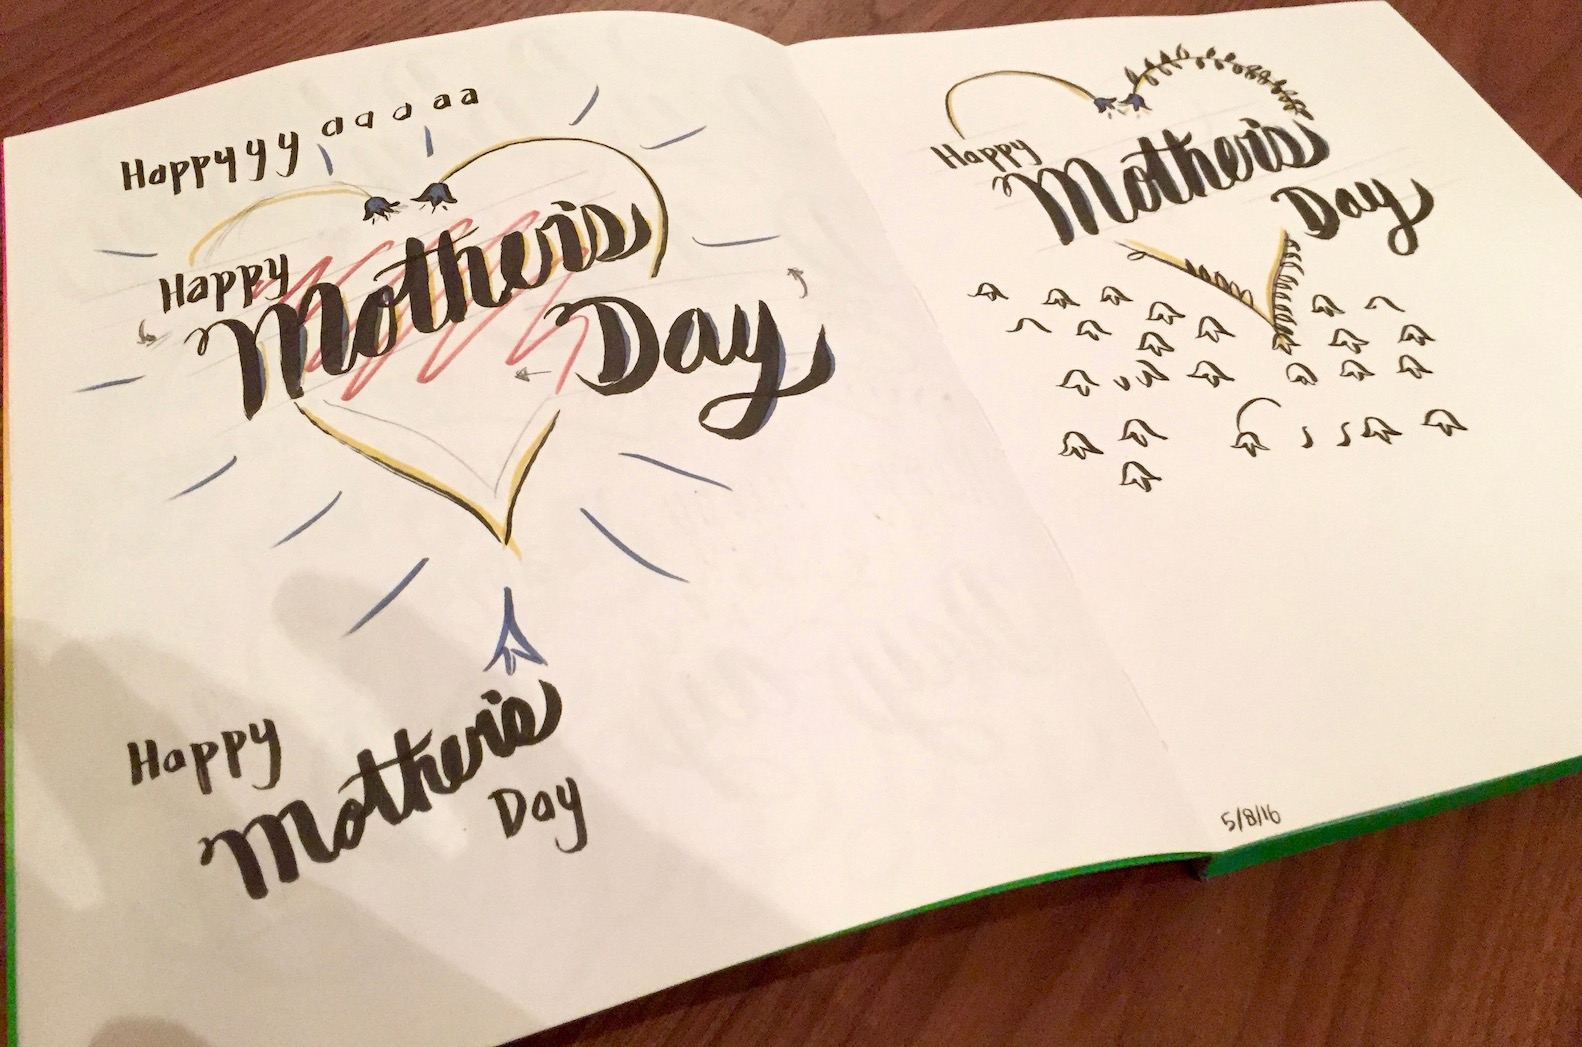 Happyyy aaaaa
Happy
Mother's
Day
Happy
Mother's
Day
Happy
Mother's
Day
5/8/16